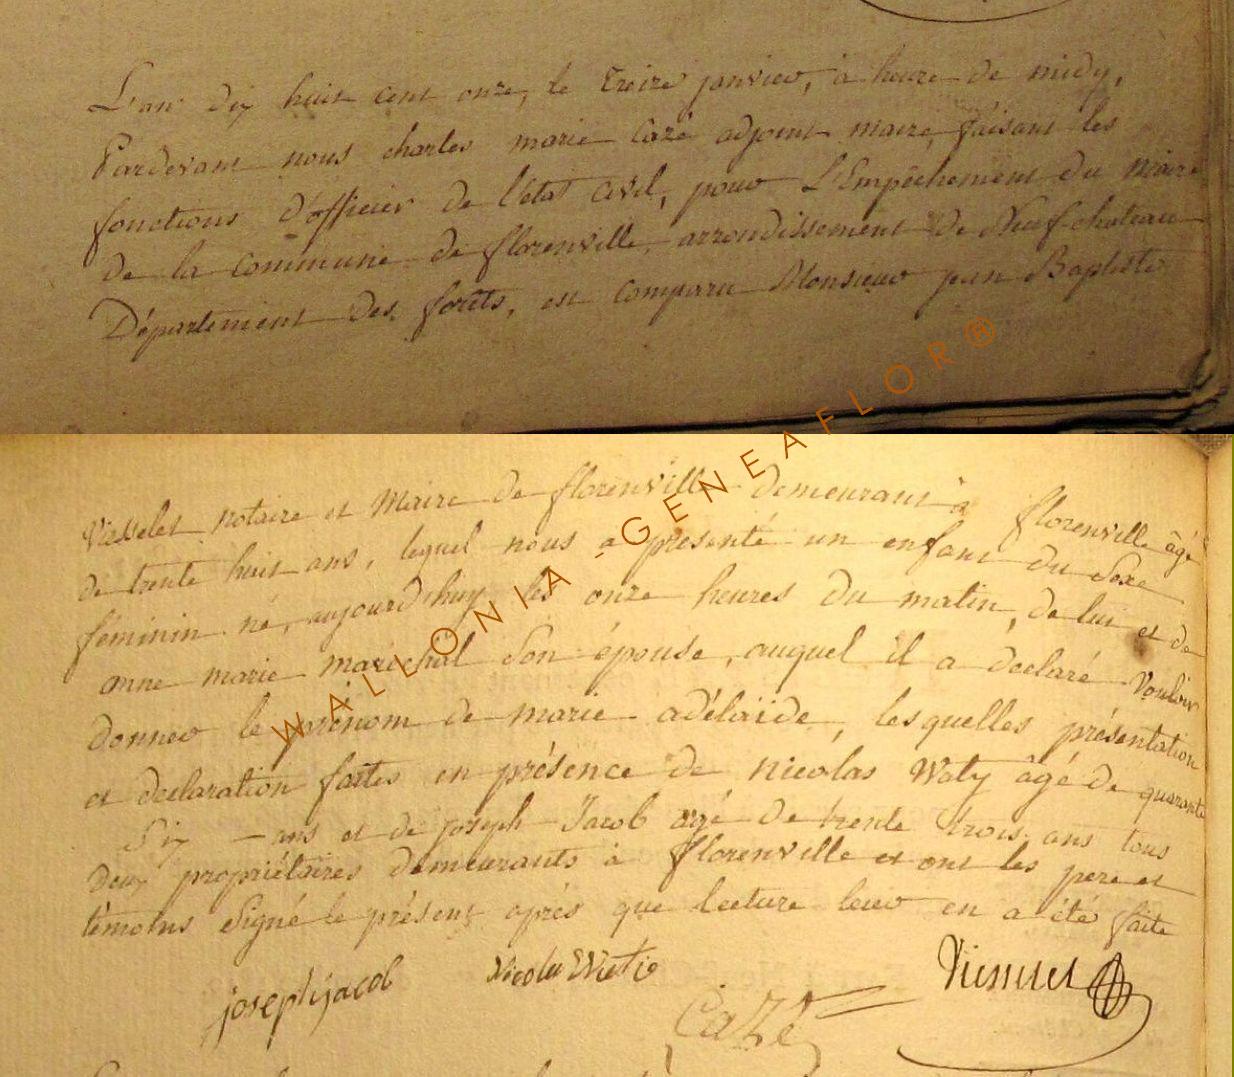 L'an dix huit cent onze, le treize janvier, à heure de midy,
Pardevant nous charles marie Cazé adjoint maire, faisant les
fonctions d'officier de l'état civil, pour L'Empêchement du Maire
de la commune de florenville, arrondissement de Neufchateau
Département des forêts, est comparu Monsieur jean Baptiste
notaire et Maire de florenville demeurant à florenville âgé
de trente huit ans, lequel nous a présenté un enfant du Sexe
féminin né, aujourd'huy les onze heures du matin, de lui et de
anne marie maréchal Son épouse, auquel il a declaré Vouloir
donner le prénom de marie adélaïde, lesquelles présentation
et declaration faites en présence de nicolas Waty âgé de quarante
Six ans et de joseph Jacob agé de trente trois ans tous
Deux propriétaires demeurants à florenville et ont les pere et
témoins Signé le présent après que lecture leur en a été faite
joseph jacob Nicolas Cazé
WALLONIA-GENEAFLOR®